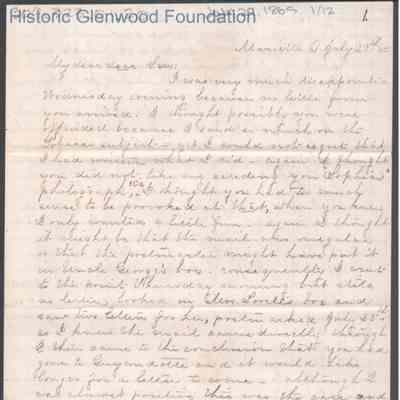 Historic Glenwood Foundation
July 29, 1865 1/12
1
Maysville July 29th 65
My dear dear Sir:
I was very much disappointed
Wednesday evening because no letter from
you arrived. I thought possibly you were
offended because I said so much on the
tobacco subject - yet I could not regret that
I had written what I did - again I thought
you did not like me sending you Sophia's
photograph, I thought you had too much
sense to be provoked at that, when you knew
I only wanted a little fun. again I thought
it might be that the mail was irregular
or that the postmaster might have put it
in Uncle George's box. consequently I went
to the point Thursday morning but still
no letter, looked in box and
saw two letters for her, postmarked July 25th
so I knew the mail came directly. though
I then came to the conclusion that you had
gone to Guyandotte and it would take
longer for a letter to come - although I
was almost pouting this was the case and